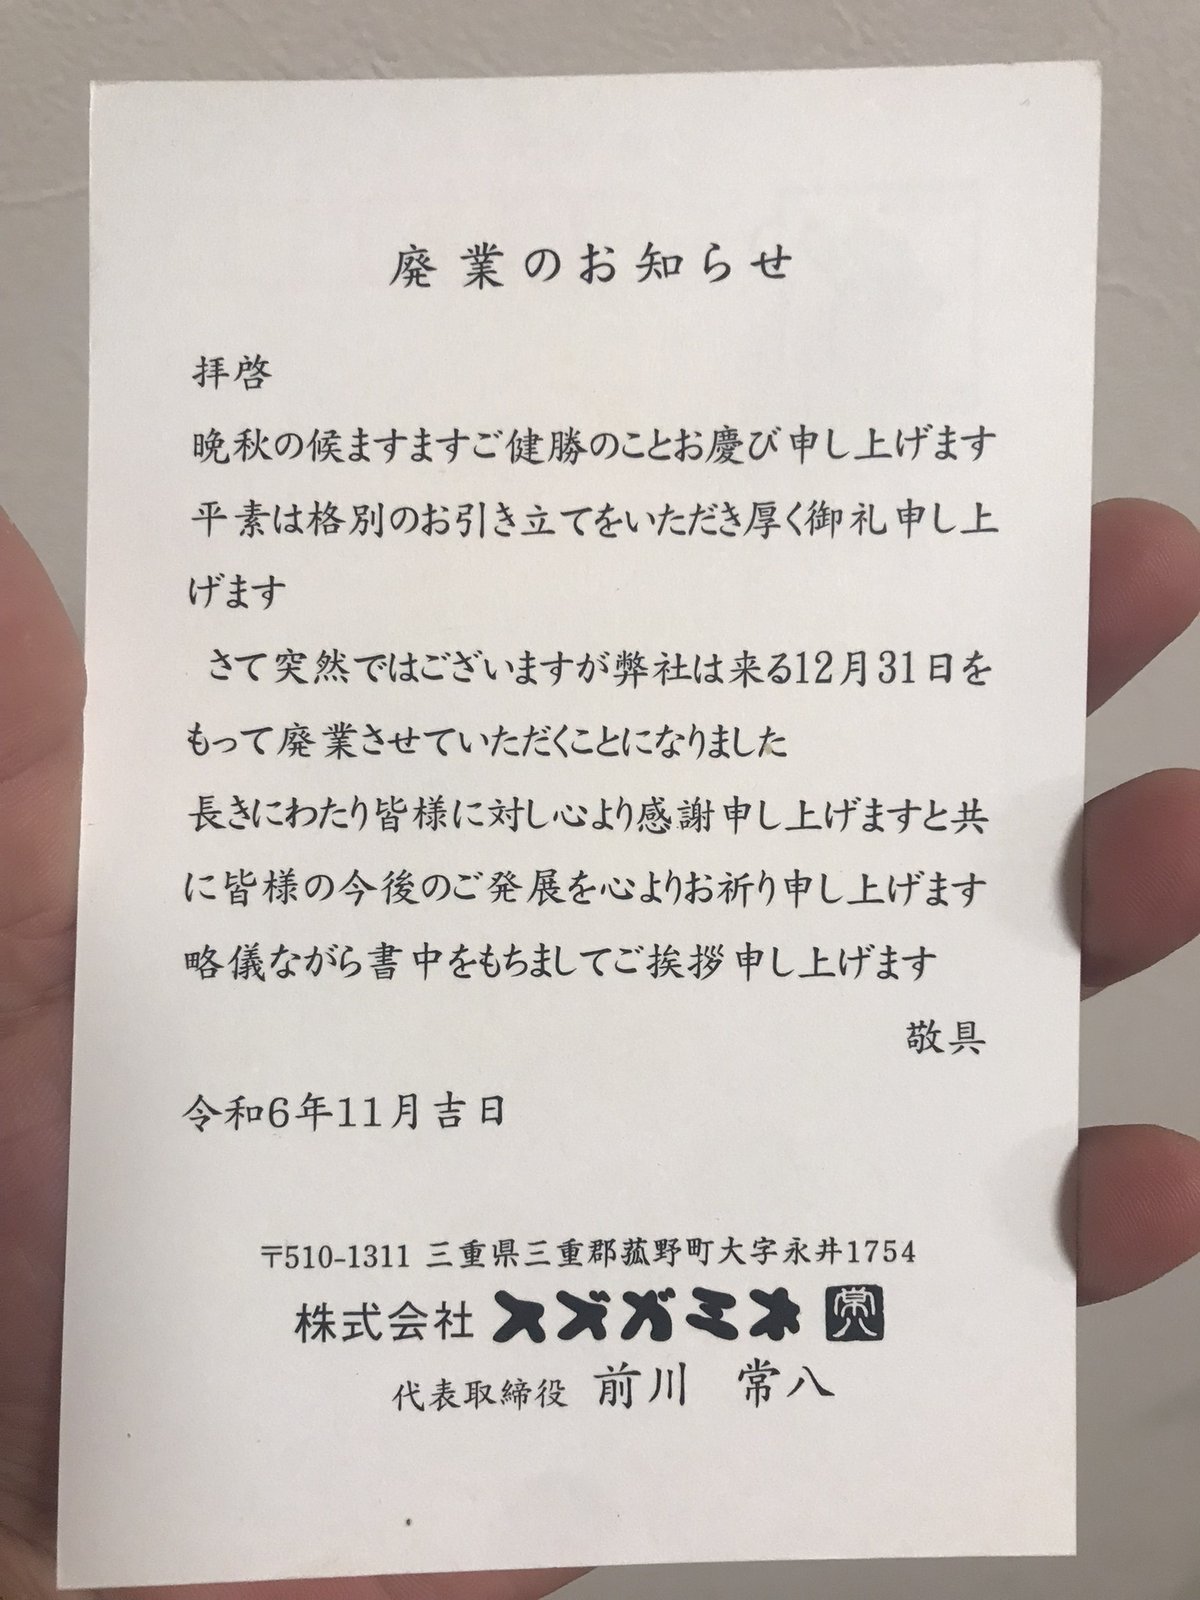 廃業のお知らせ
拝啓
晩秋の候ますますご健勝のことお慶び申し上げます
平素は格別のお引き立てをいただき厚く御礼申し上
げます
さて突然ではございますが弊社は来る12月31日を
もって廃業させていただくことになりました
長きにわたり皆様に対し心より感謝申し上げますと共
に皆様の今後のご発展を心よりお祈り申し上げます
略儀ながら書中をもちましてご挨拶申し上げます
敬具
令和6年11月吉日
〒510-1311 三重県三重郡菰野町大字永井1754
株式会社 スズガミネ 常八
代表取締役 前川 常八